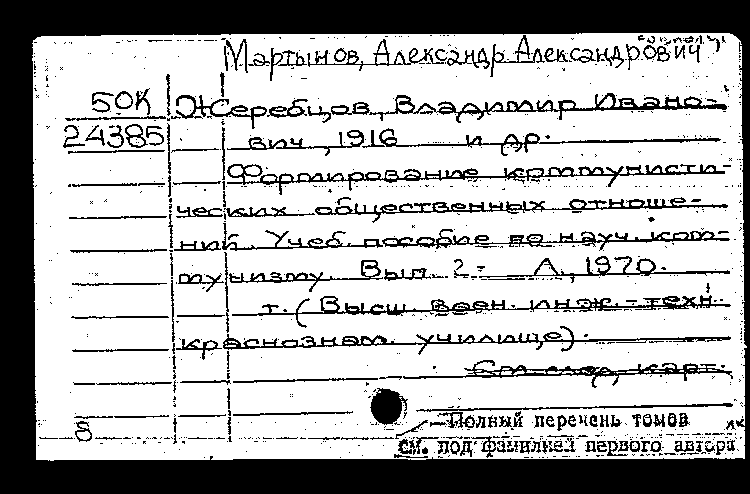 Мартынов, Александр Александрович
50К Жеребцов, Владимир Ивано-
24385 вич, 1916 и др.
Формирование коммунисти-
ческих общественных отноше-
ний. Учеб. пособие по науч. ком-
мунизму. Вып. 2- Л., 1970.
т. (Высш. воен. инж.-техн.
краснознам. училище).
См. след. карт.
8 —Полный перечень томов
см. под фамилией первого автора